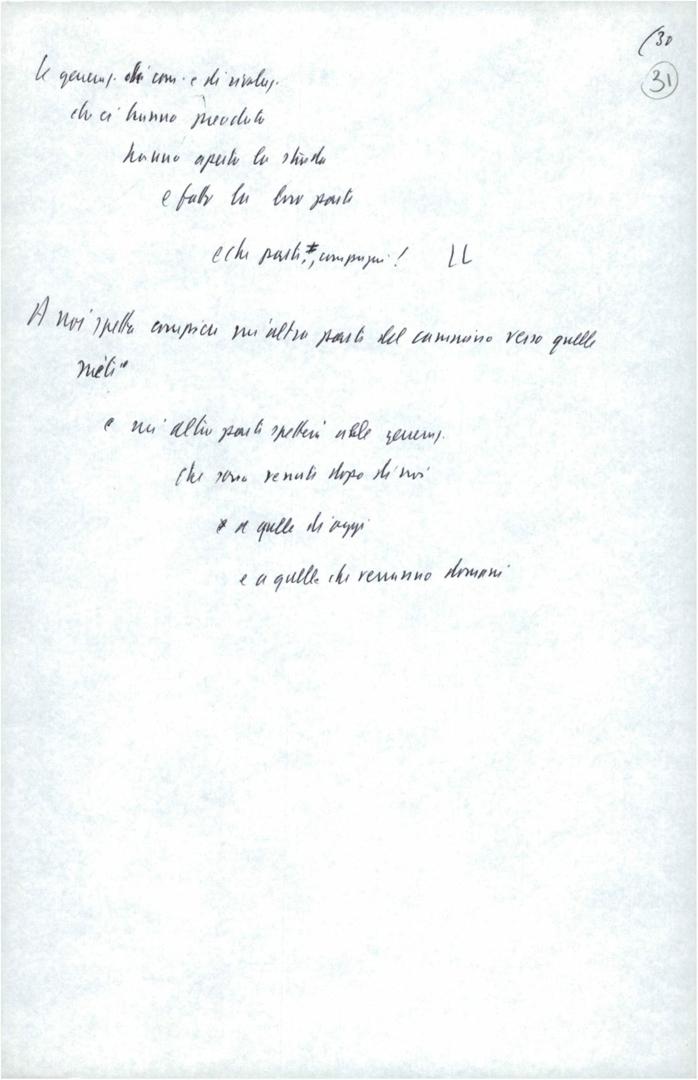 (30
31
le generaz. di com. e di rivoluz.
che ci hanno preceduto
hanno aperto la strada
e fatto la loro parte
e che parte, compagni! LL
A noi spetta compiere un'altra parte del cammino verso quelle
mète"
e un'altra parte spetterà alle generaz.
che sono venute dopo di noi
a quelle di oggi
e a quelle che verranno domani